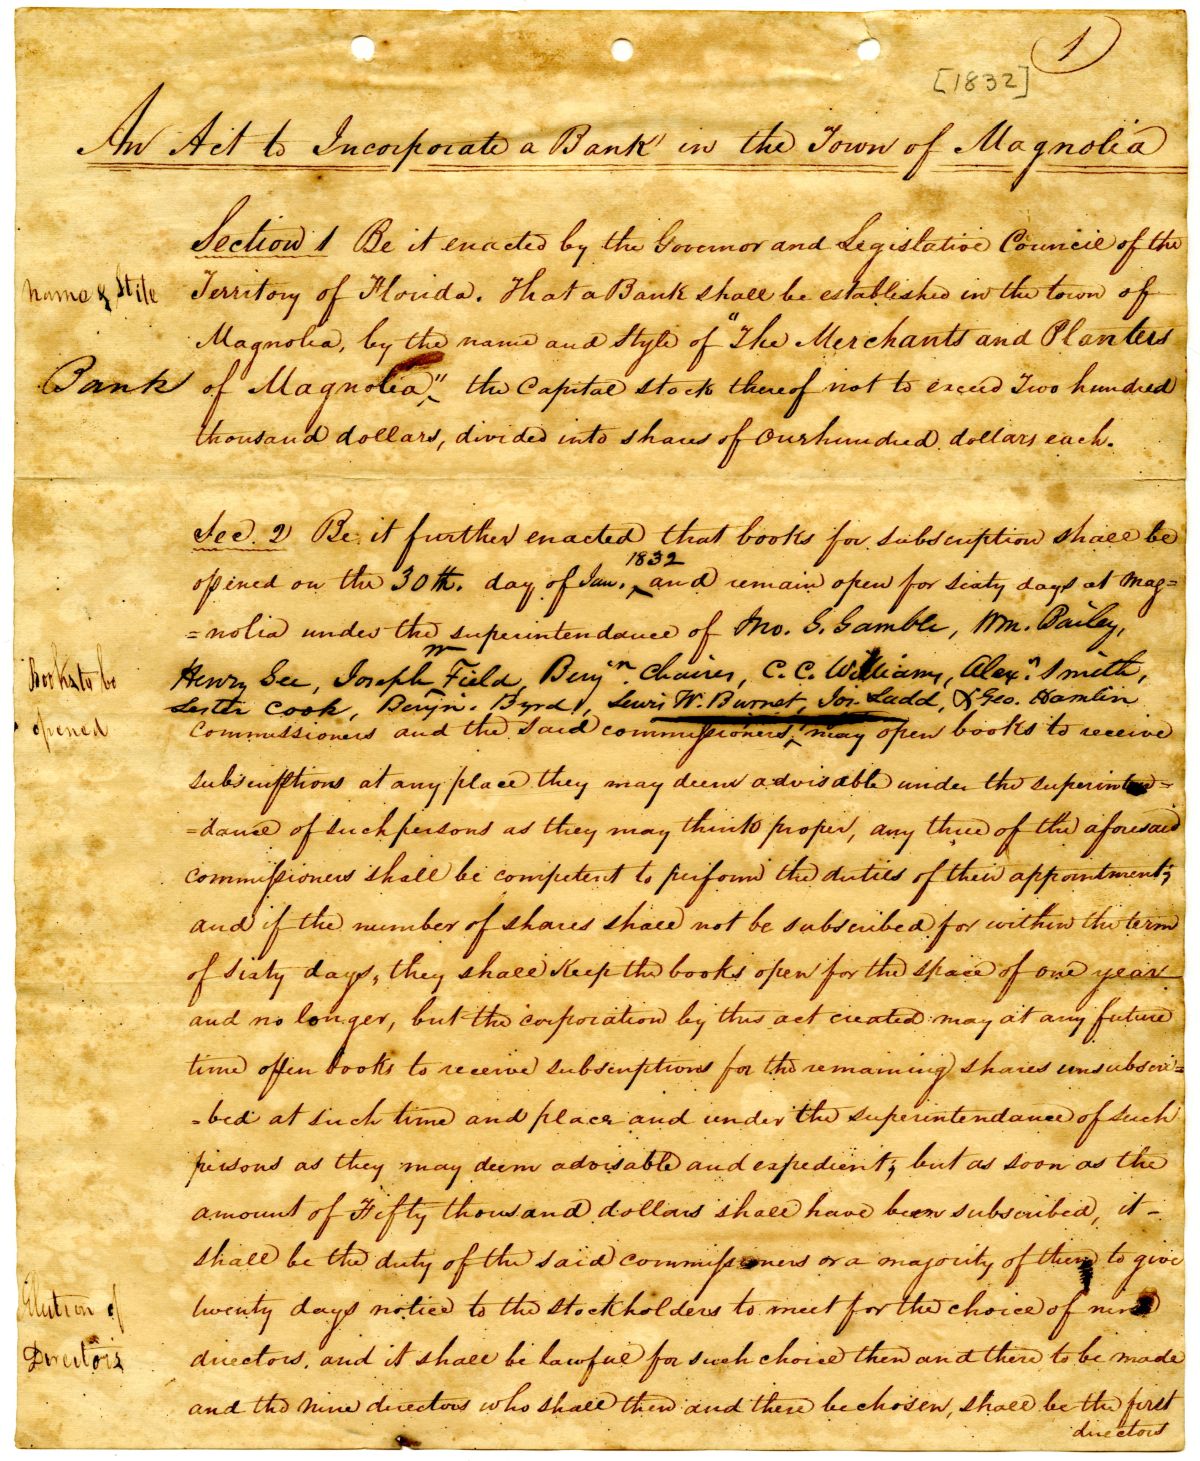 1
[1832]
An Act to Incorporate a Bank in the Town of Magnolia
Section 1 Be it enacted by the Governor and Legislative Council of the
name & Stile
Territory of Florida. That a Bank shall be established in the town of
Magnolia, by the name and Style of "The Merchants and Planters
Bank of Magnolia," the Capital stock thereof not to exceed Two hundred
thousand dollars, divided into shares of One hundred dollars each.
Sec. 2 Be it further enacted that books for subscription shall be
1832
opened on the 30th. day of Jan. and remain open for sixty days at Mag=
=nolia under the superintendance of Jno. G. Gamble, Wm. Bailey,
Books to be
Henry Gee, Joseph m Field, Benjn. Chaires, C. C. Williams, Alexr. Smith,
Lester Cook, Benjn. Byrd, Lewis W. Burnet, Jos. Ladd, & Geo. Hamlin
opened
Commissioners and the said commissioners, may open books to receive
subscriptions at any place they may deem advisable under the superinten=
=dance of such persons as they may think proper, any three of the aforesaid
commissioners shall be competent to perform the duties of their appointment;
and if the number of shares shall not be subscribed for within the term
of sixty days, they shall keep the books open for the space of one year
and no longer, but the corporation by this act created may at any future
time open books to receive subscriptions for the remaining shares unsubscri=
=bed at such time and place and under the superintendance of such
persons as they may deem advisable and expedient; but as soon as the
amount of Fifty thousand dollars shall have been subscribed, it-
shall be the duty of the said commissioners or a majority of them to give
Election of
twenty days notice to the stockholders to meet for the choice of nine
Directors
directors. and it shall be lawful for such choice then and there to be made
and the nine directors who shall then and there be chosen, shall be the first
directors